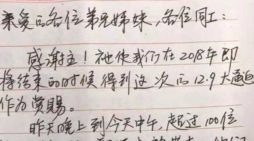 亲爱的各位弟兄姊妹，各位同工：
感谢主！祂使我们在2018年即
将结束的时候得到这次的12.9大逼迫
作为赏赐。
昨天晚上到今天中午，超过100位